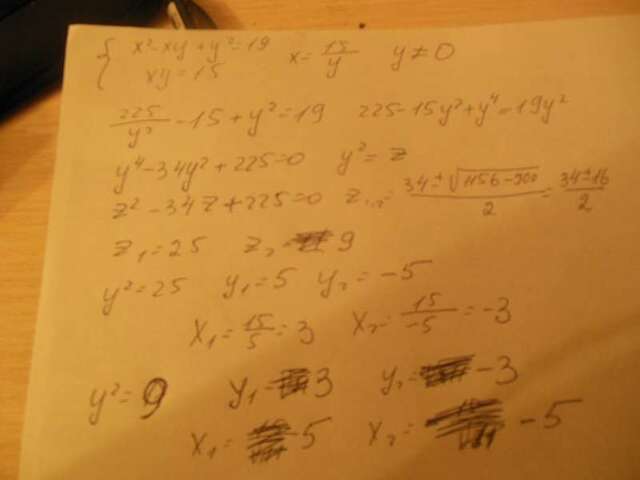 { x² - xy + y² = 19   x = 15/y   y ≠ 0
xy = 15
225/y² - 15 + y² = 19   225 - 15y² + y⁴ = 19y²
y⁴ - 34y² + 225 = 0   y² = z
z² - 34z + 225 = 0   z₁,₂ = (34 ± √(1156 - 900))/2 = (34 ± 16)/2
z₁ = 25   z₂ = 9
y² = 25   y₁ = 5   y₂ = -5
x₁ = 15/5 = 3   x₂ = 15/-5 = -3
y² = 9   y₁ = 3   y₂ = -3
x₁ = 5   x₂ = -5